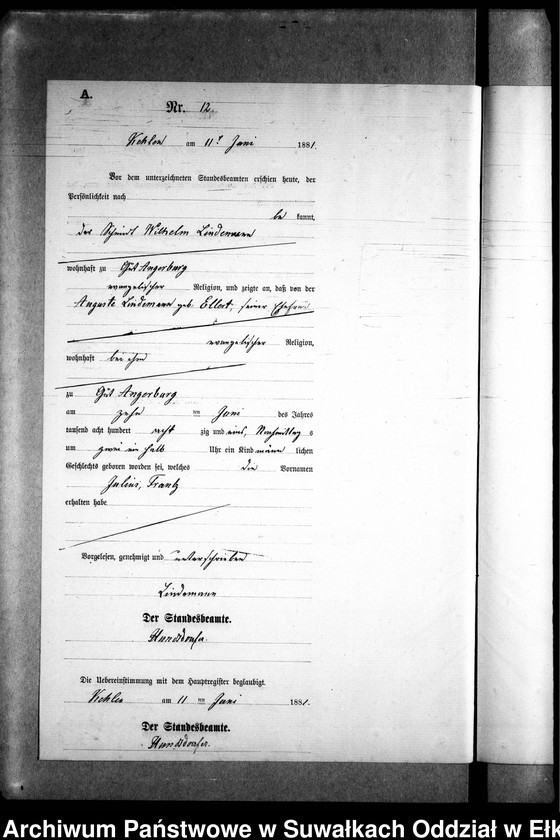 A.
Nr. 12.
Kehlen am 11t Juni 1881.
Vor dem unterzeichneten Standesbeamten erschien heute, der
Persönlichkeit nach
be kannt,
der Schmidt Wilhelm Lindemann
wohnhaft zu Gut Angerburg
evangelischer Religion, und zeigte an, daß von der
Auguste Lindemann geb. Ellert, seiner Ehefrau
evangelischer Religion,
wohnhaft bei ihm
zu Gut Angerburg
am zehn ten Juni des Jahres
tausend acht hundert acht zig und eins, Nachmittag s
um zwei ein halb Uhr ein Kind männ lichen
Geschlechts geboren worden sei, welches die Vornamen
Julius, Frantz
erhalten habe
Vorgelesen, genehmigt und unterschrieben
Lindemann
Der Standesbeamte.
Die Uebereinstimmung mit dem Hauptregister beglaubigt.
Kehlen am 11 ten Juni 1881.
Der Standesbeamte.
Archiwum Państwowe w Suwałkach Oddział w Ełk